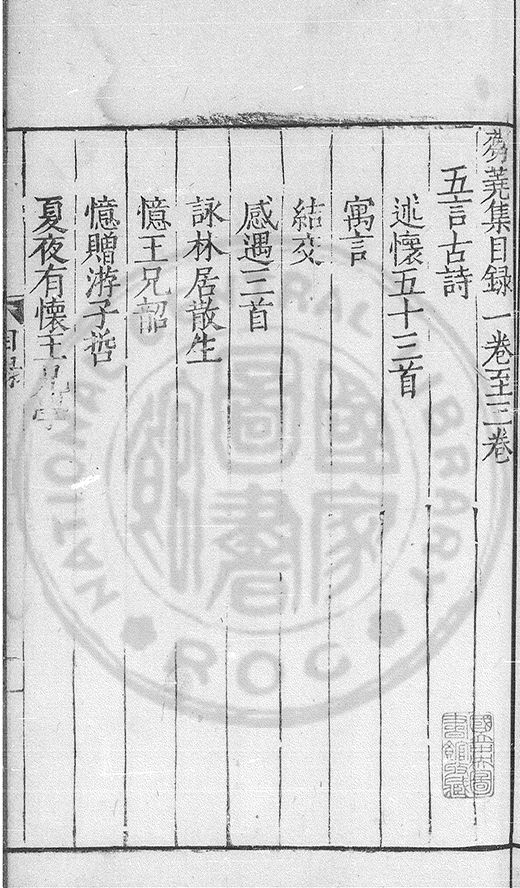 芻蕘集目録一卷至三卷
五言古詩
述懷五十三首
寓言
結交
感遇三首
詠林居散生
憶王兄韶
憶贈游子哲
夏夜有懷王
目録
國家圖書館
NATIONAL CENTRAL LIBRARY
ROC
國立中央圖書館收藏